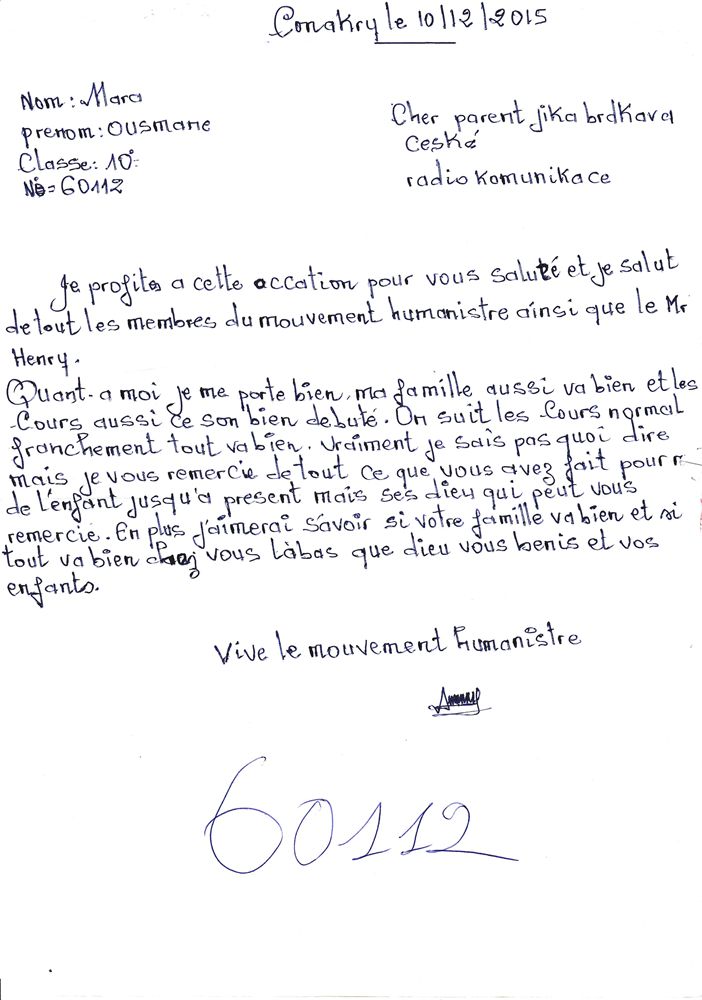 Conakry le 10/12/2015
Nom: Mara
prenom: Ousmane
Classe: 10e
N°= 60112
Cher parent jika brdkava
Ceské
radio komunikace
Je profite a cette occation pour vous saluté et je salut
de tout les membres du mouvement humanistre ainsi que le Mr
Henry.
Quant-a moi je me porte bien, ma famille aussi va bien et les
Cours aussi ce son bien debuté. On suit les Cours normal
franchement tout va bien. vraiment je sais pas quoi dire
mais je vous remercie de tout ce que vous avez fait pour
de l'enfant jusqu'a present mais ses dieu qui peut vous
remercie. En plus j'aimerai savoir si votre famille va bien et si
tout va bien chez vous làbas que dieu vous benis et vos
enfants.
Vive le mouvement humanistre
60112